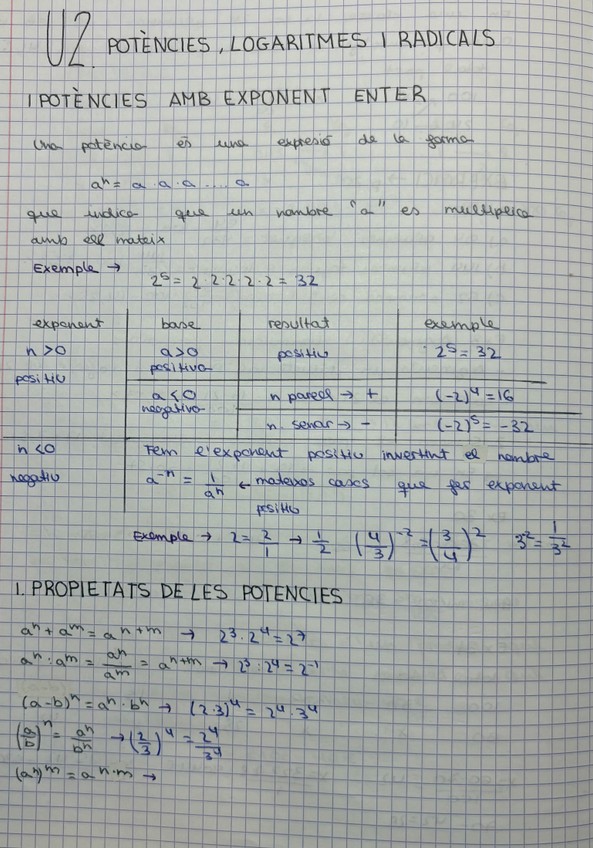 U2. POTÈNCIES, LOGARITMES I RADICALS
1 POTÈNCIES AMB EXPONENT ENTER
Una potència és una expresió de la forma
aⁿ = a · a · a .... a
que indica que un nombre "a" es multiplica
amb ell mateix
Exemple →
2⁵ = 2·2·2·2·2 = 32
exponent base resultat exemple
n>0 a>0 positiu 2⁵ = 32
positiu positiva
a<0 n parell → + (-2)⁴ = 16
negativa n. senar → - (-2)⁵ = -32
n<0 Fem l'exponent positiu invertint el nombre
negatiu a⁻ⁿ = 1/aⁿ ← mateixos casos que fer exponent
positiu
Exemple → 2 = 2/1 → 1/2 (4/3)⁻² = (3/4)² 3² = 1/3²
1. PROPIETATS DE LES POTENCIES
aⁿ + aᵐ = aⁿ⁺ᵐ → 2³ · 2⁴ = 2⁷
aⁿ : aᵐ = aⁿ/aᵐ = aⁿ⁺ᵐ → 2³ : 2⁴ = 2⁻¹
(a-b)ⁿ = aⁿ · bⁿ → (2·3)⁴ = 2⁴ · 3⁴
(a/b)ⁿ = aⁿ/bⁿ → (2/3)⁴ = 2⁴/3⁴
(aⁿ)ᵐ = aⁿ·ᵐ →